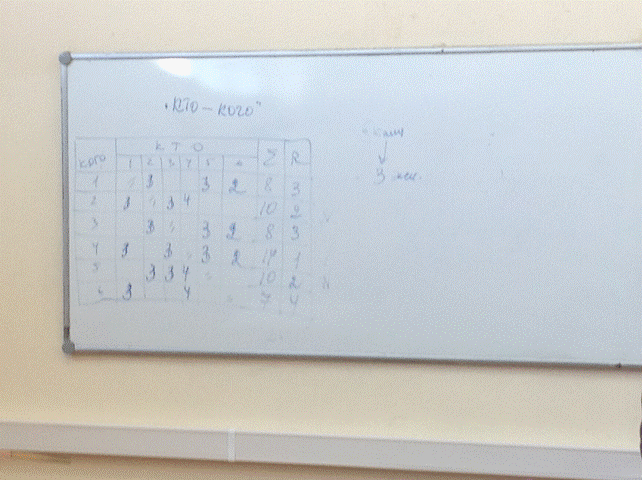 "КТО – КОГО"
КТО
КОГО 1 2 3 4 5 6 Σ R
1 3 3 2 8 3
2 3 3 4 10 2
3 3 3 2 8 3
4 3 3 3 2 1
5 3 3 4 10 2
6 3 4 7 4
3